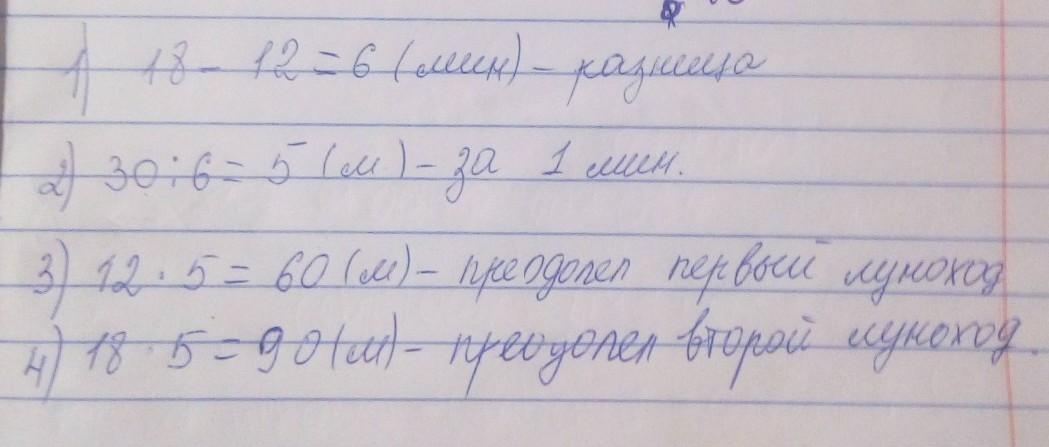 1) 18 - 12 = 6 (мин) - разница
2) 30 : 6 = 5 (м) - за 1 мин.
3) 12 · 5 = 60 (м) - преодолел первый луноход
4) 18 · 5 = 90 (м) - преодолел второй луноход.